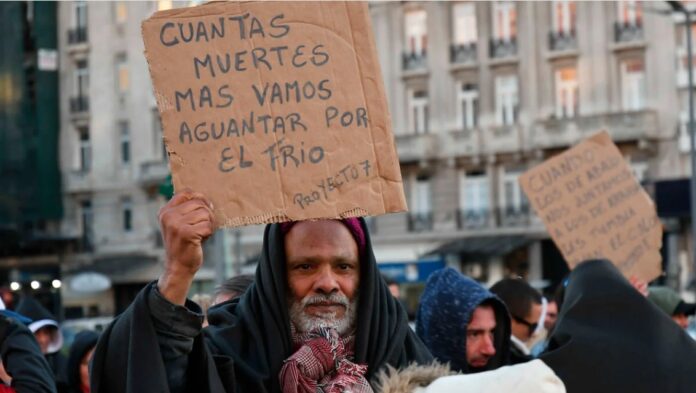 CUANTAS
MUERTES
MAS VAMOS
AGUANTAR POR
EL FRIO
PROYECTO 7
CUANDO
LOS DE ABAJO
NOS JUNTAMOS
LOS DE ARRIBA